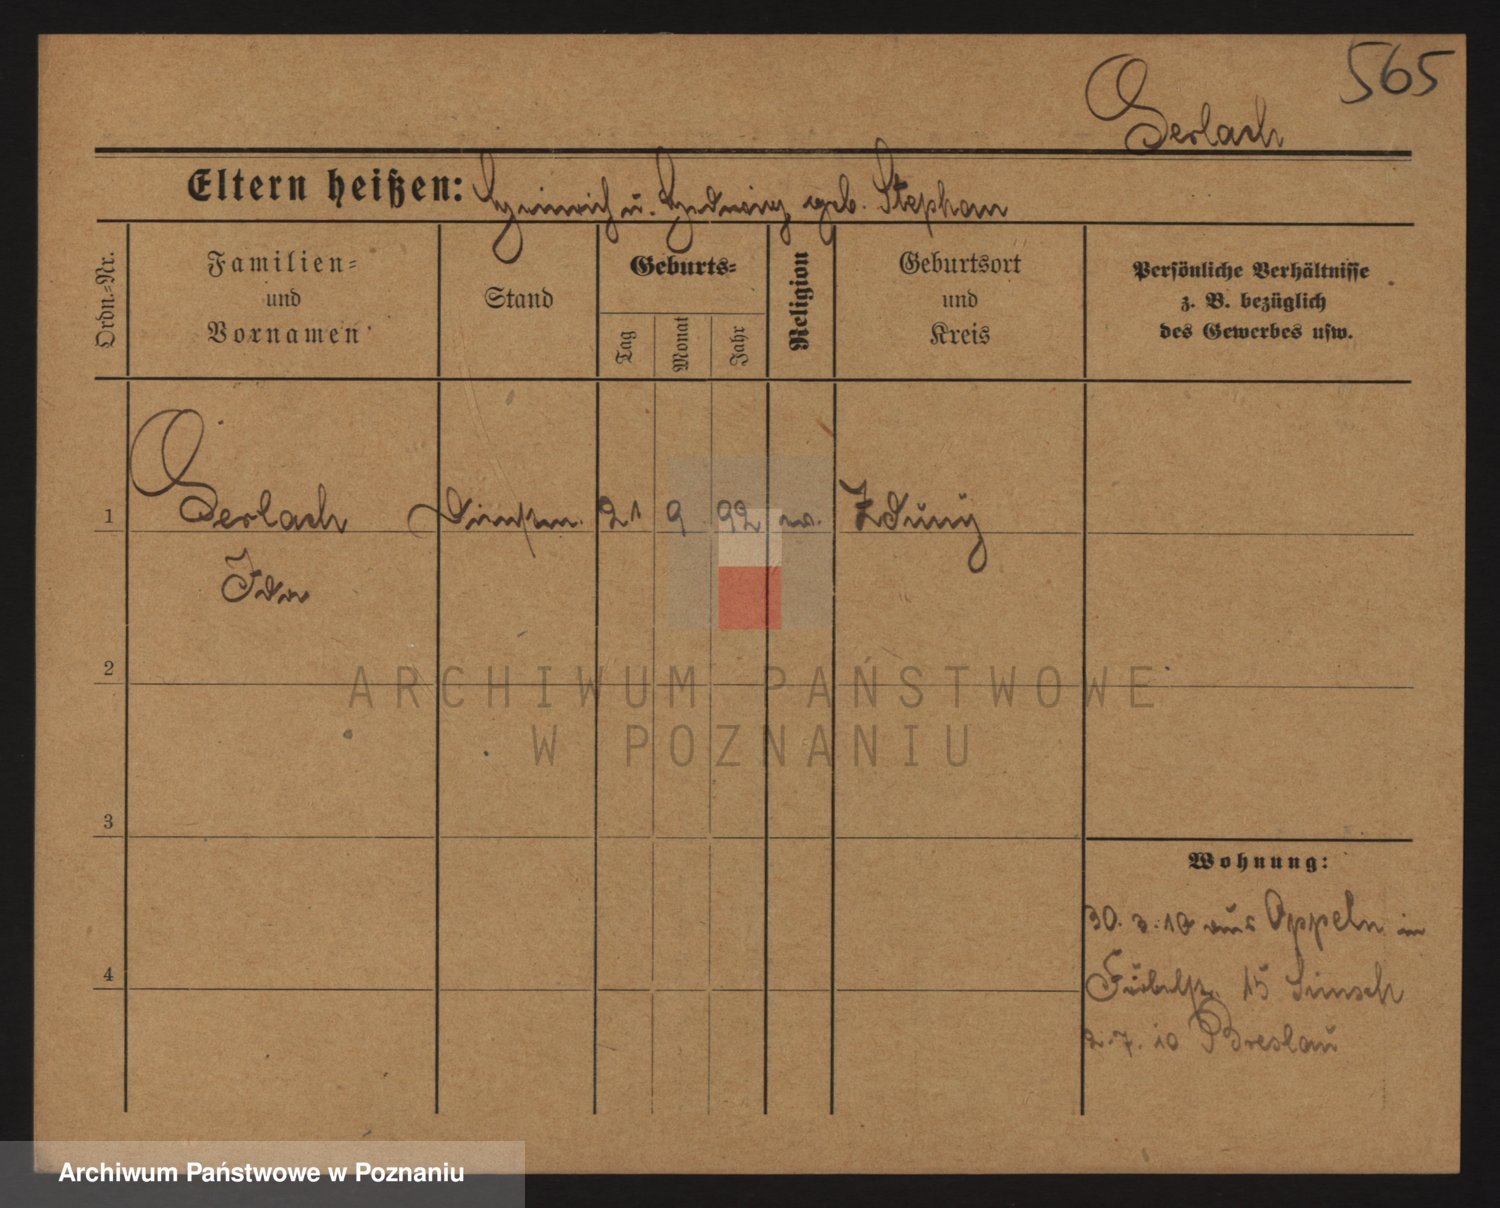 565
Gerlach
Eltern heißen: Heinrich u. Hedwig geb. Stephan
Ordn.-Nr.
Familien-
und
Vornamen
Stand
Geburts-
Tag
Monat
Jahr
Religion
Geburtsort
und
Kreis
Persönliche Verhältnisse
z. B. bezüglich
des Gewerbes usw.
1
Gerlach
21 9 92
Zduny
Ida
2
ARCHIWUM PAŃSTWOWE
W POZNANIU
3
Wohnung:
30. 3. 10 aus Oppeln in
15
4
2. 7. 10 Breslau
Archiwum Państwowe w Poznaniu